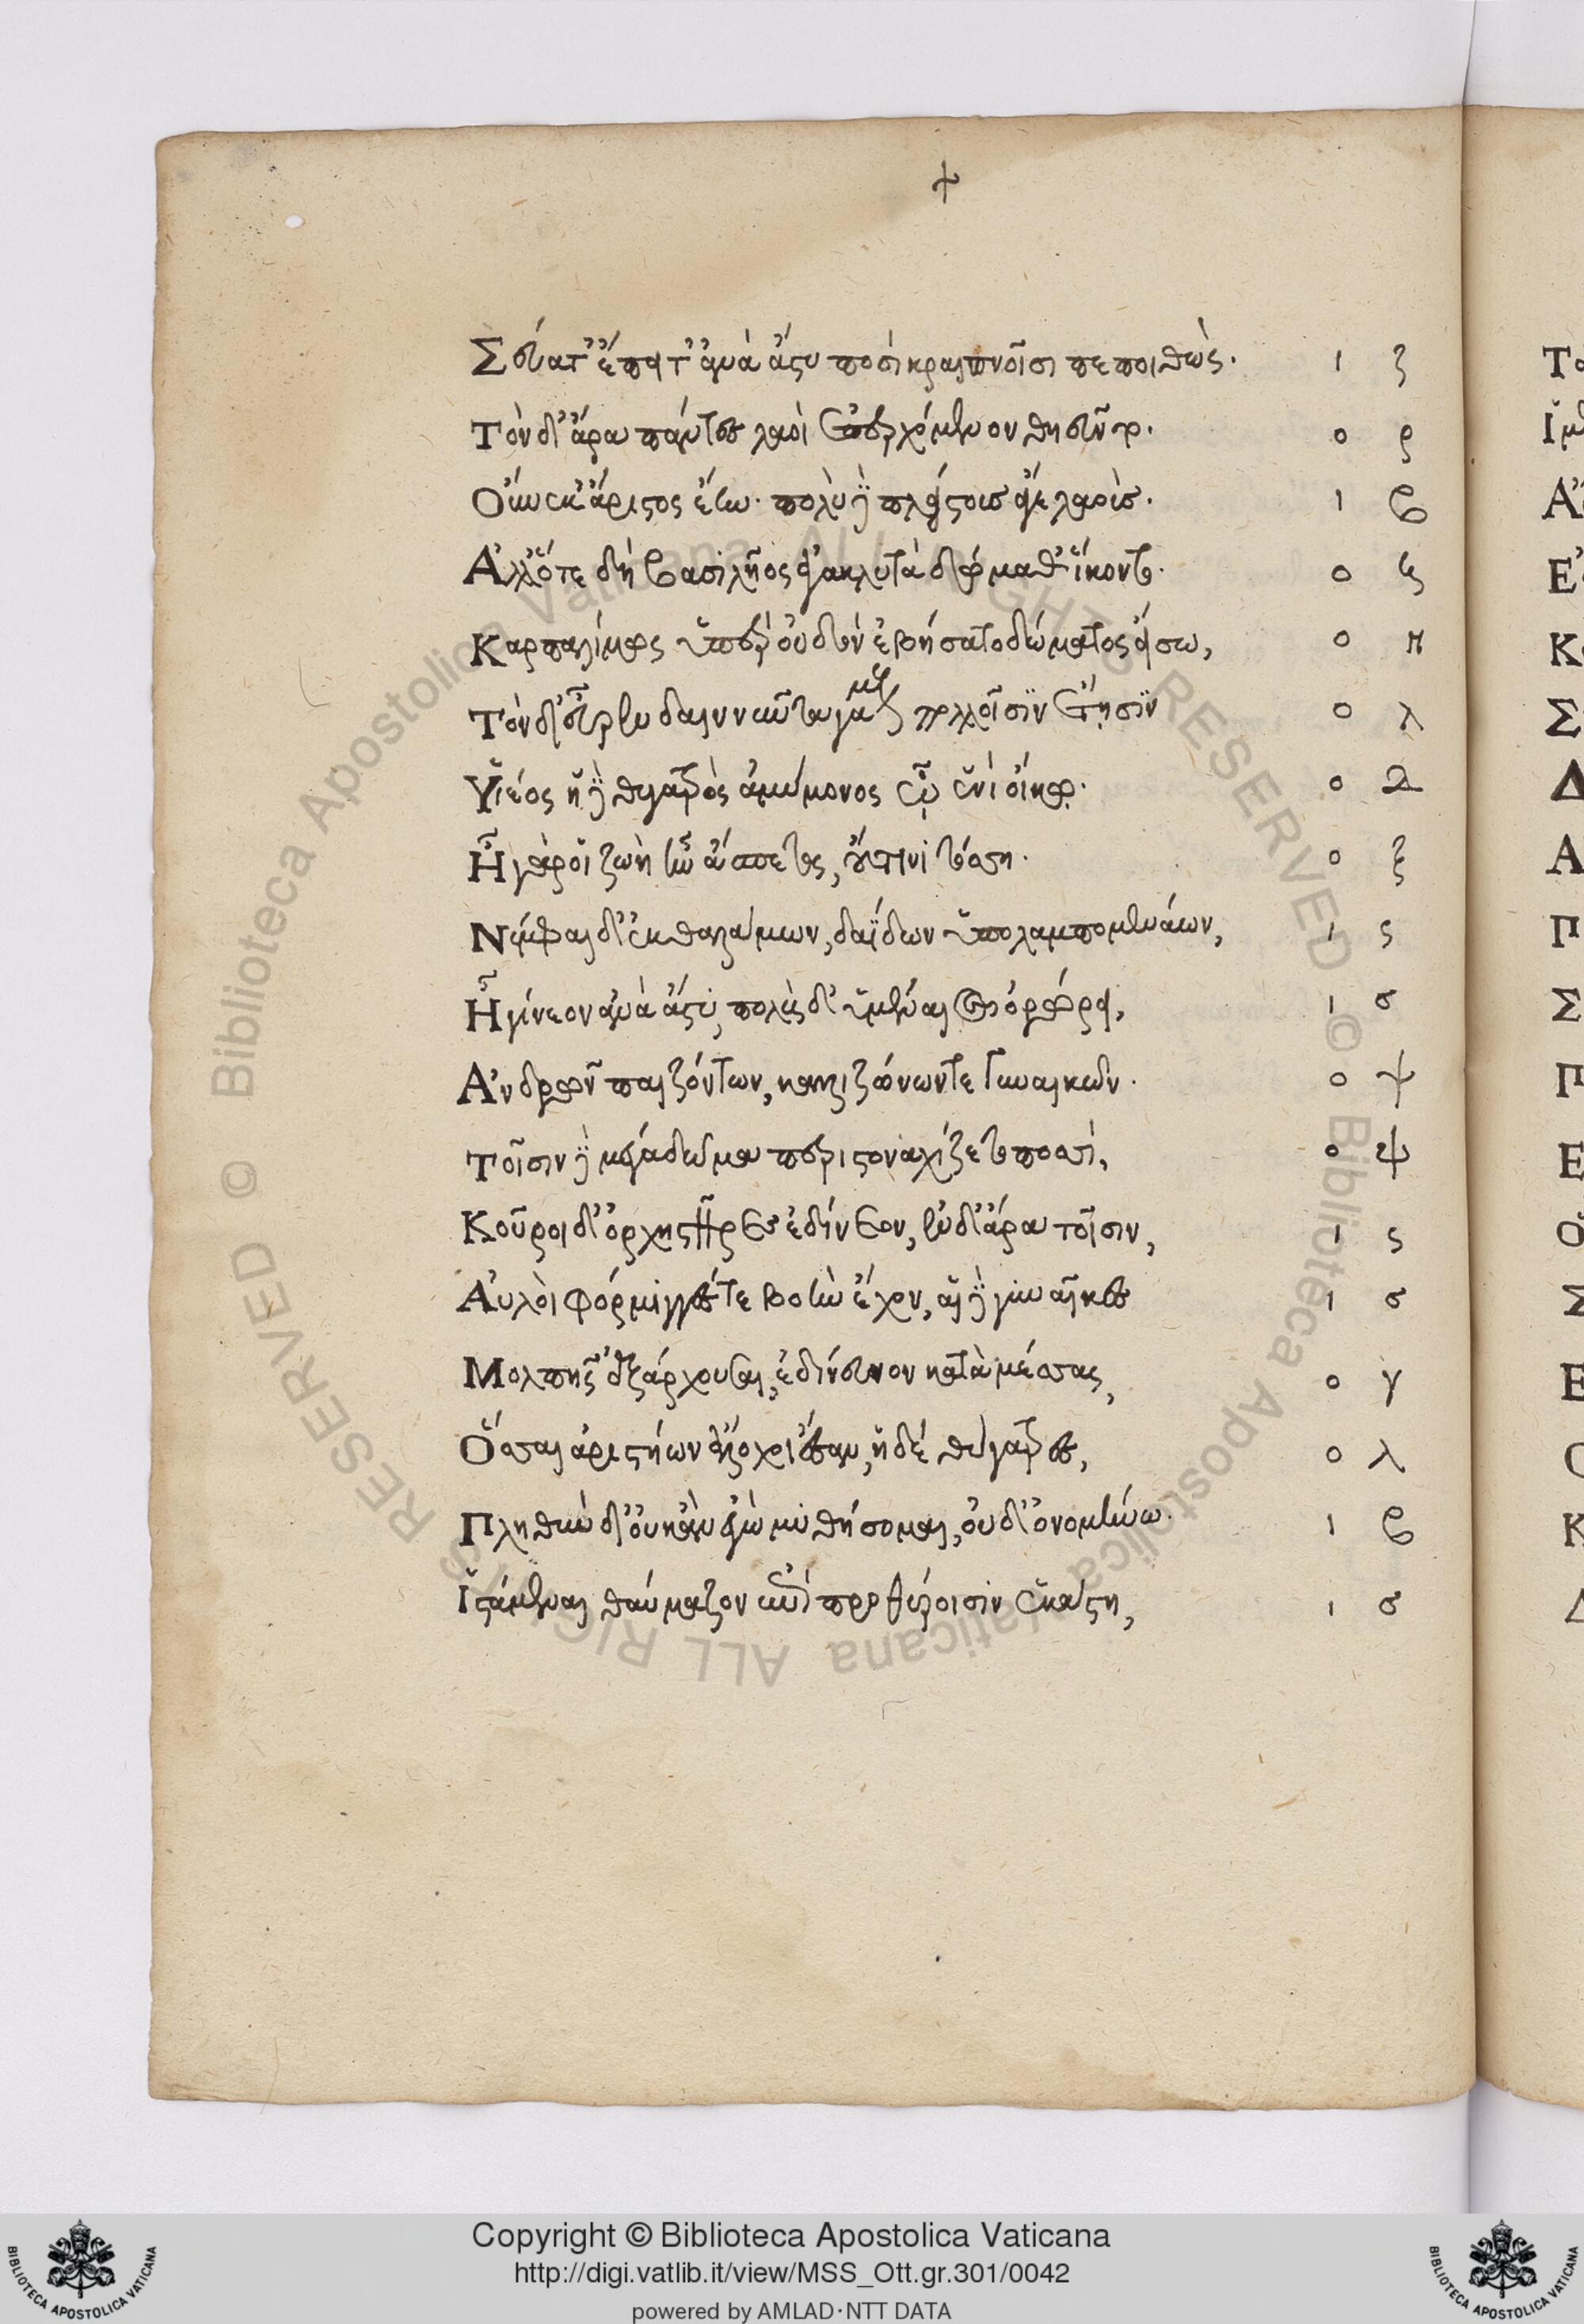 Σεύατ' ἔπειτ' ἀνὰ ἄστυ ποσὶ κραιπνοῖσι πεποιθώς. ι ζ
Τὸν δ' ἄρα πάντες λαοὶ ἐπερχόμενον θηεῦντο. ο ρ
Οὕνεκ' ἄριστος ἔην· πολὺ δὲ πλείστους ἄγε λαούς. ι β
Ἀλλ' ὅτε δὴ βασιλῆος ἀγακλυτὰ δώμαθ' ἵκοντο. ο
Καρπαλίμως ὑπὲρ οὐδὸν ἐβήσατο δώματος εἴσω, ο π
Τὸν δ' εὗρεν δαινύντα γάμον πολλοῖσϊν ἔτῃσϊν ο λ
Ὑϊέος ἠδὲ θυγατρὸς ἀμύμονος ᾧ ἐνὶ οἴκῳ. ο
Ἦ γάρ οἱ ζωὴ ἦν ἄσπετος, οὔτινι τόση. ο ξ
Νύμφαι δ' ἐκ θαλάμων, δαΐδων ὑπολαμπομενάων, ι ς
Ἠγίνεον ἀνὰ ἄστυ, πολὺς δ' ὑμέναιος ὀρώρει, ι σ
Ἀνδρῶν παιζόντων, καλλιζώνων τε γυναικῶν. ο ψ
Τοῖσιν δὲ μέγα δῶμα περιστοναχίζετο ποσσί, ο ψ
Κοῦροι δ' ὀρχηστῆρες ἐδίνεον, ἐν δ' ἄρα τοῖσιν, ι ς
Αὐλοὶ φόρμιγγές τε βοὴν ἔχον, αἱ δὲ γυναῖκες ι σ
Μολπῆς ἐξάρχουσαι, ἐδίνευον κατὰ μέσσας, ο γ
Ὅσσαι ἀριστήων ἄλοχοι ἔσαν, ἠδὲ θύγατρες, ο λ
Πληθὺν δ' οὐκ ἂν ἐγὼ μυθήσομαι, οὐδ' ὀνομήνω. ι β
Ἱστάμεναι θαύμαζον ἐπὶ προθύροισιν ἑκάστη, ι σ
Copyright © Biblioteca Apostolica Vaticana
http://digi.vatlib.it/view/MSS_Ott.gr.301/0042
powered by AMLAD·NTT DATA